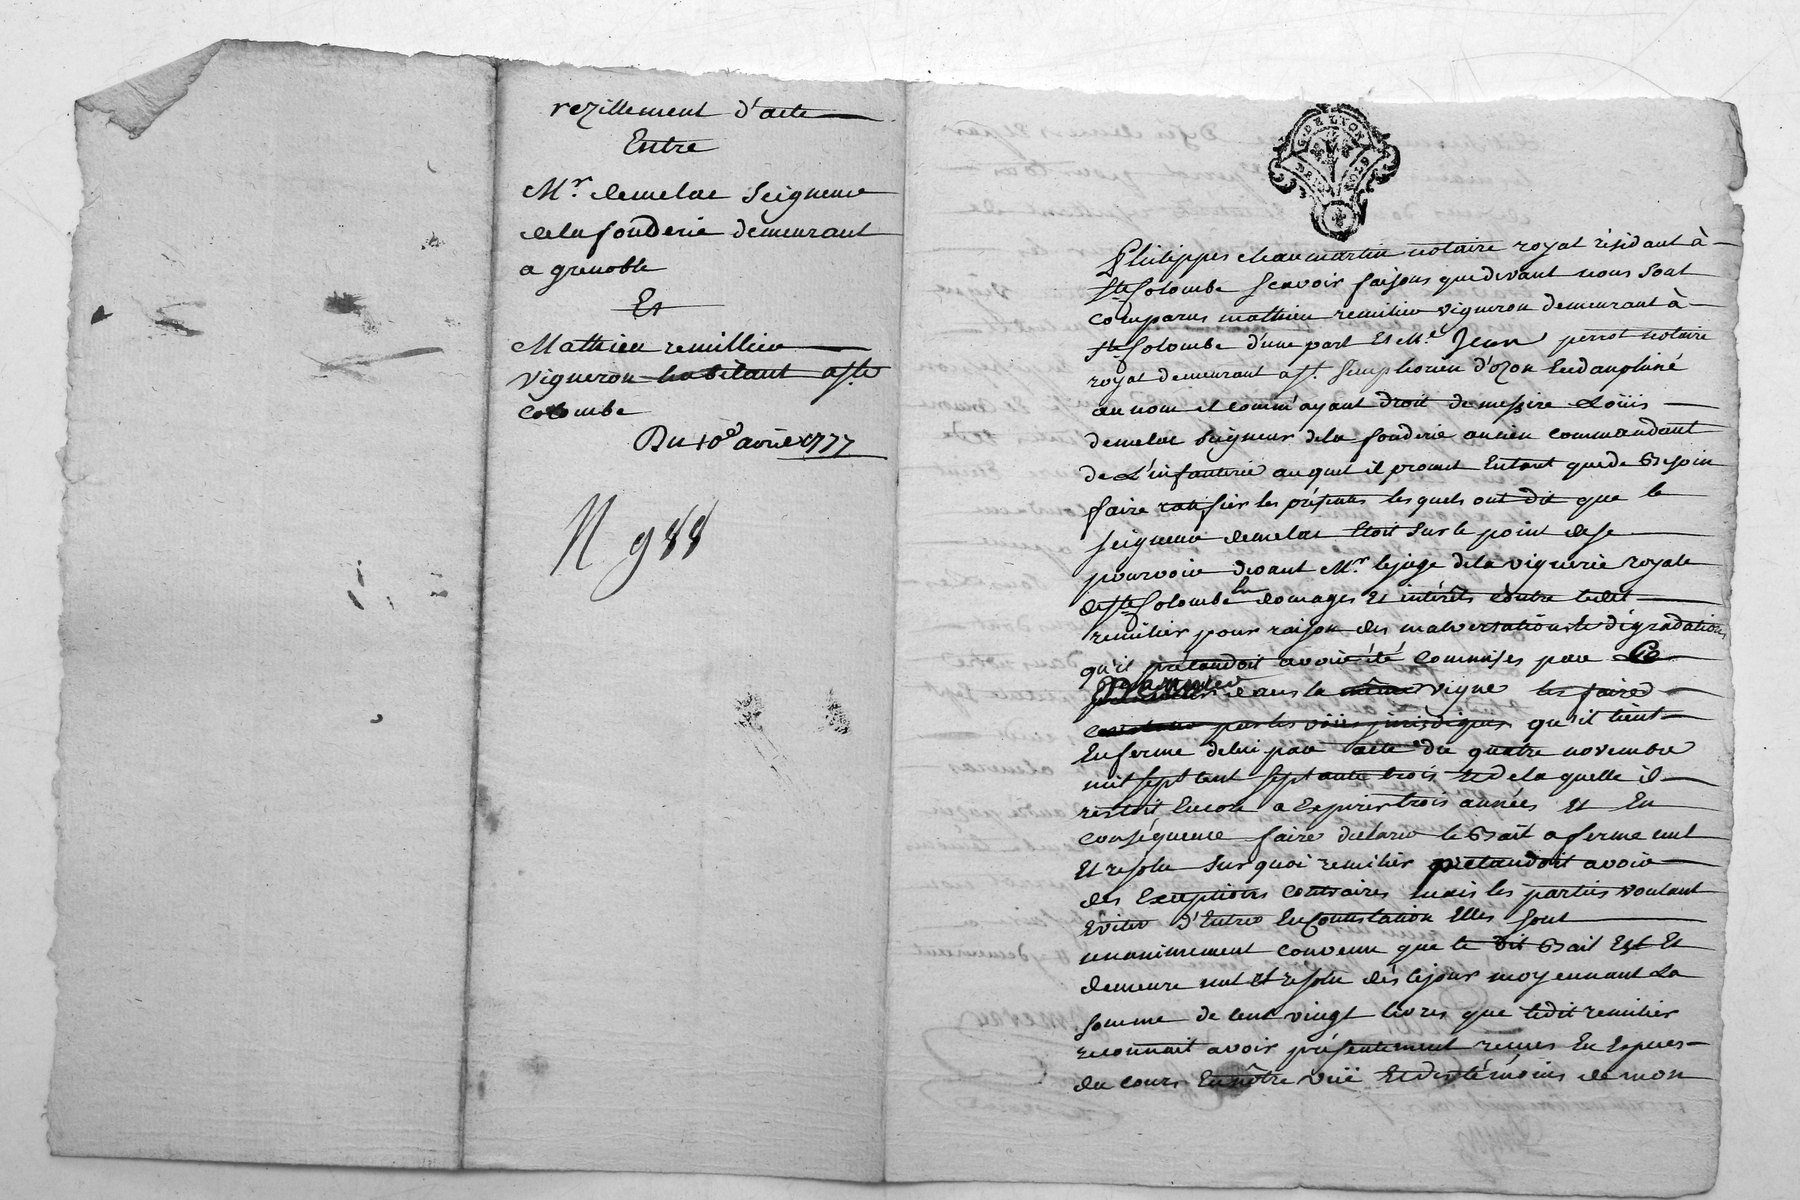 rezillement d'acte
Entre
Mr. demelac Seigneur
dela fonderie demeurant
a grenoble
Et
Mathieu remillieu
vigneron habitant a Ste
Colombe
Du 10e avril 1777
N 988
G. DE LYON
DEUX SOLS
Philippes chaumartin notaire royal résidant à
Ste Colombe Scavoir faisons que devant nous sont
comparus mathieu remilier vigneron demeurant à
Ste Colombe d'une part Et Me. Jean perrot notaire
royal demeurant a St. Simphorien d'ozon En dauphiné
au nom et comm'ayant droit de messire Loüis
demelac Seigneur dela fonderie ancien commandant
de L'infanterie auquel il promet Entant que de Besoin
faire ratifier les présentes lesquels ont dit que le
Seigneur demelac Etoit Sur le point de se
pourvoir devant Mr. le juge de la viguerie royale
de Ste Colombe En domages Et intérêts contre ledit
remilier pour raison des malversations Et dégradations
qu'il prétendoit avoir été Commises par Le
premier dans la même vigne les faire
par les voiies juridiques qu'il tient
En ferme de lui par acte du quatre novembre
mil sept cent septante trois Et de laquelle il
restoit Encore a Expirer trois années Et En
conséquence faire déclarer le Bail a ferme nul
Et resolu Sur quoi remilier prétendoit avoir
des Exceptions Contraires mais les parties voulant
Eviter d'Entrer En Contestation Elles Sont
unanimement convenu que le dit Bail Est Et
demeure nul Et resolu dès ce jour moyennant La
Somme de cent vingt livres que ledit remilier
reconnait avoir présentement reçues En Especes
du cours En nôtre vüe Et des témoins de mon